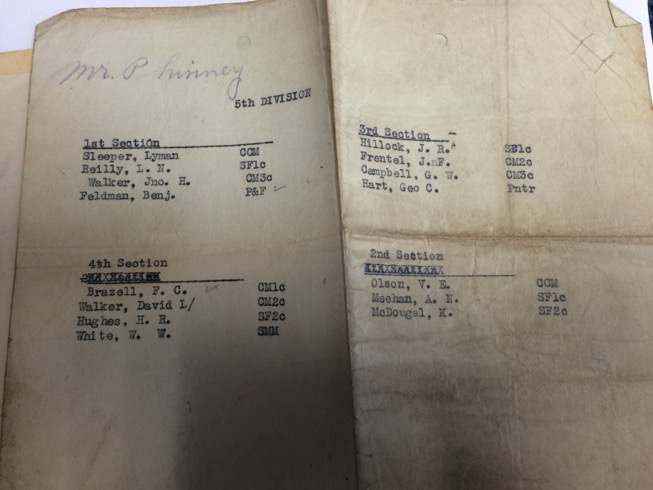 Mr. Phinney
5th DIVISION
1st Section
Sleeper, Lyman CCM
Reilly, L. N. SF1c
Walker, Jno. H. CM3c
Feldman, Benj. P&F
4th Section
Brazell, F. C. CM1c
Walker, David L/ CM2c
Hughes, H. R. SF2c
White, W. W. SMM
3rd Section
Hillock, J. R. SF1c
Frentel, J.nF. CM2c
Campbell, G. W. CM3c
Hart, Geo C. Pntr
2nd Section
Olson, V. E. CCM
Meehan, A. N. SF1c
McDougal, K. SF2c